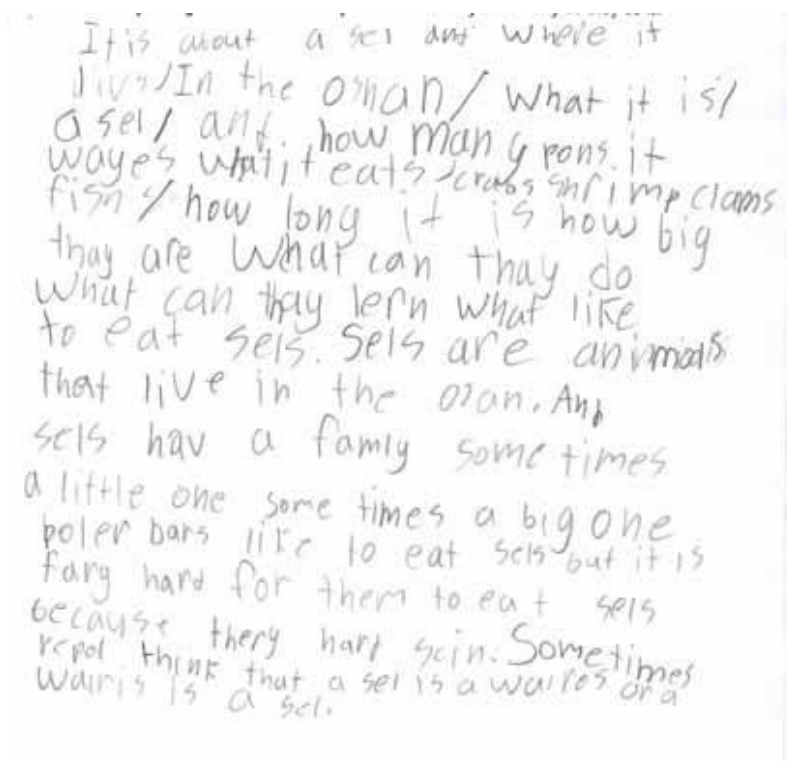 It is about a sel and where it
livs/In the oshan/ What it is/
a sel/ and. how many pons. it
wayes what it eats/crabs shrimp clams
fish/how long it is how big
thay are What can thay do
What can thay lern what like
to eat sels. Sels are animals
that live in the osan. And
sels hav a famly some times
a little one some times a big one
poler bars like to eat sels but it is
fary hard for them to eat sels
because thery hard scin. Sometimes
repol think that a sel is a walros or a
walris is a sel.